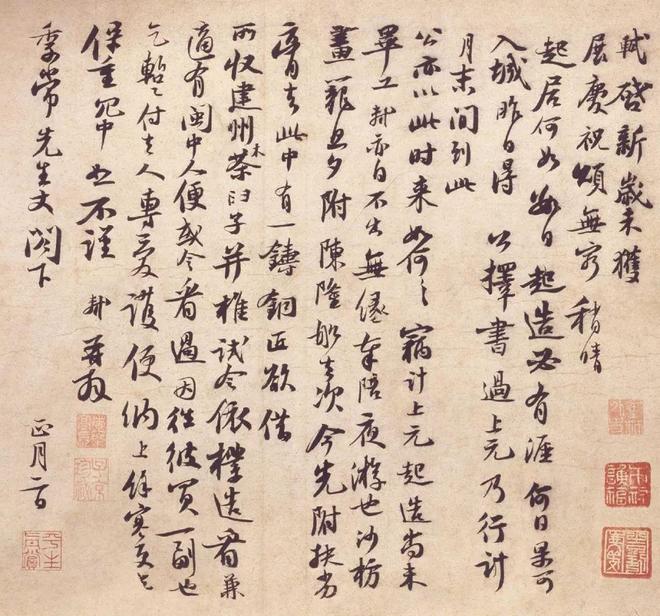 軾啓新歲未獲
展慶祝頌無窮稍晴
起居何如數日起造必有涯何日果可
入城昨日得 公擇書過上元乃行計
月末間到此
公亦以此時來如何々竊計上元起造尚未
畢工軾亦自不出無緣奉陪夜游也沙枋
畫籠旦夕附陳隆船去次今先附扶劣
膏去此中有一鑄銅匠欲借
所收建州木茶臼子并椎試令依樣造看兼
適有閩中人便或令看過因往彼買一副也
乞蹔付去人專愛護便納上餘寒更乞
保重冗中恕不謹 軾再拜
季常先生丈閤下
正月二日